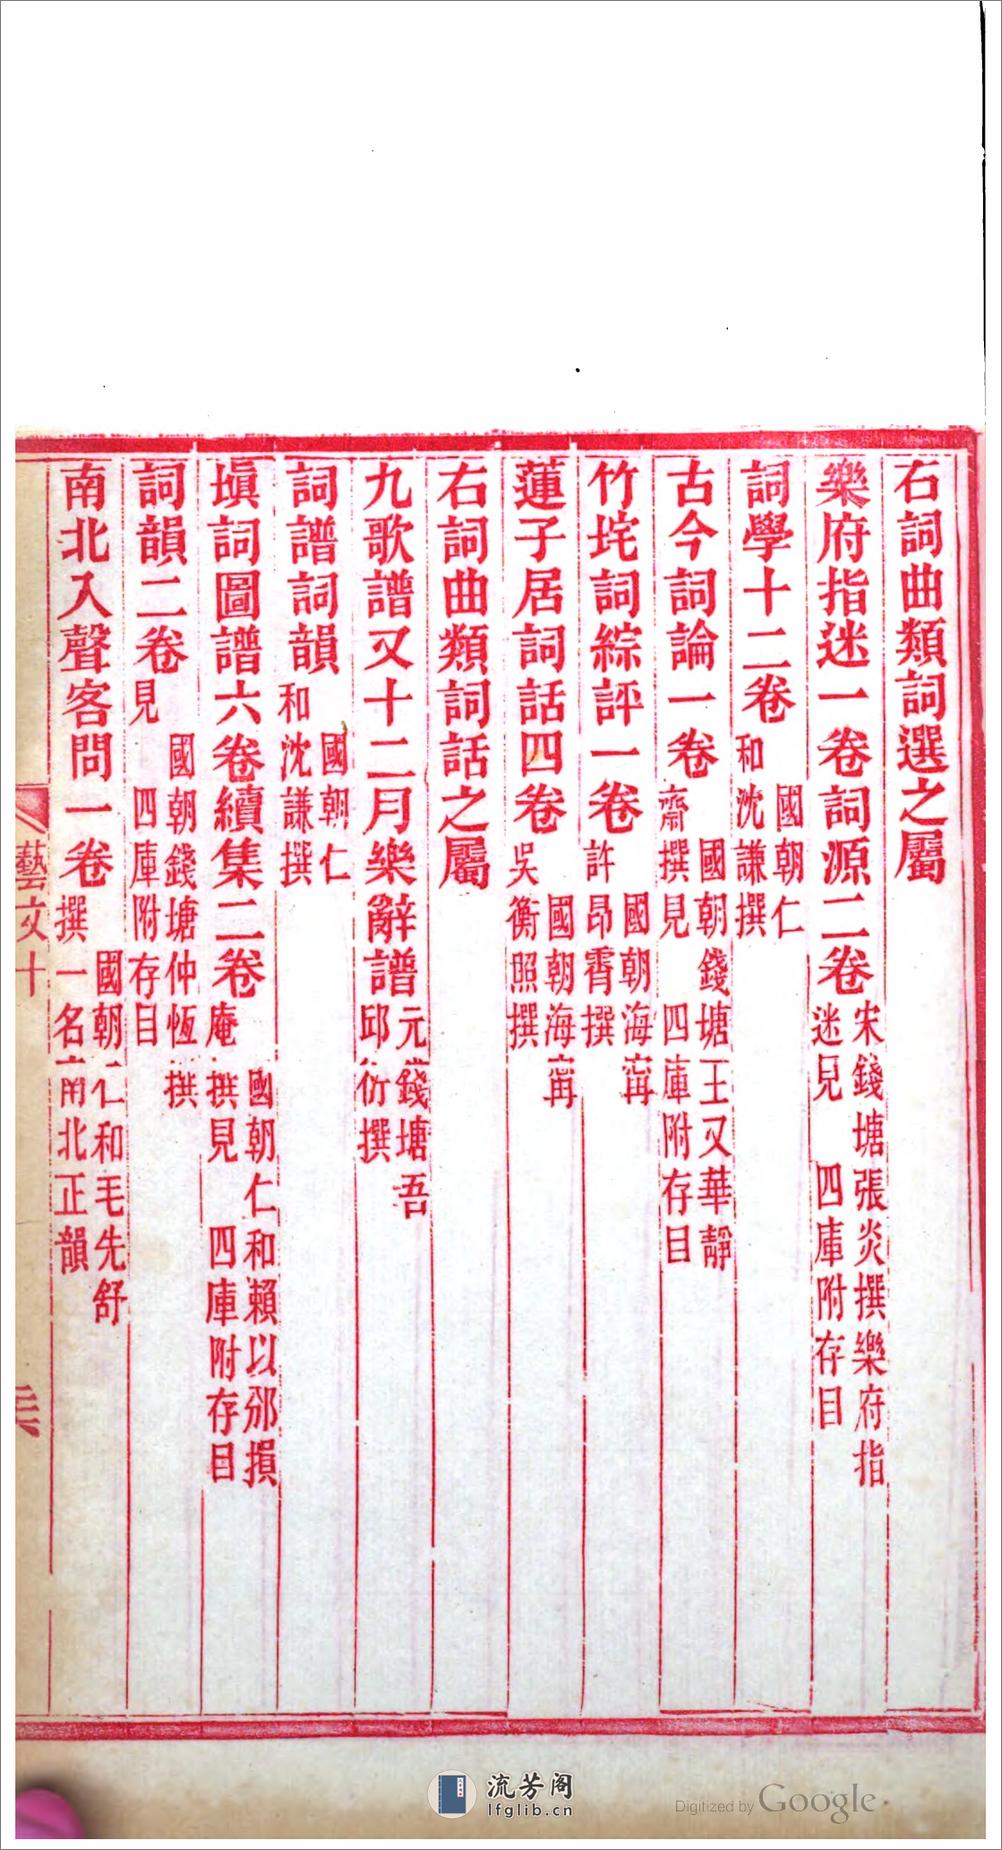 右詞曲類詞選之屬
樂府指迷一卷詞源二卷宋錢塘張炎撰樂府指迷見 四庫附存目
詞學十二卷國朝仁和沈謙撰
古今詞論一卷國朝錢塘王又華靜齋撰見 四庫附存目
竹垞詞綜評一卷國朝海甯許昂霄撰
蓮子居詞話四卷國朝海甯吳衡照撰
右詞曲類詞話之屬
九歌譜又十二月樂辭譜元錢塘吾邱衍撰
詞譜詞韻國朝仁和沈謙撰
塡詞圖譜六卷續集二卷國朝仁和賴以邠損庵撰見 四庫附存目
詞韻二卷國朝錢塘仲恆撰見 四庫附存目
南北入聲客問一卷國朝仁和毛先舒撰一名南北正韻
藝文十
流芳阁
lfglib.cn
Digitized by Google